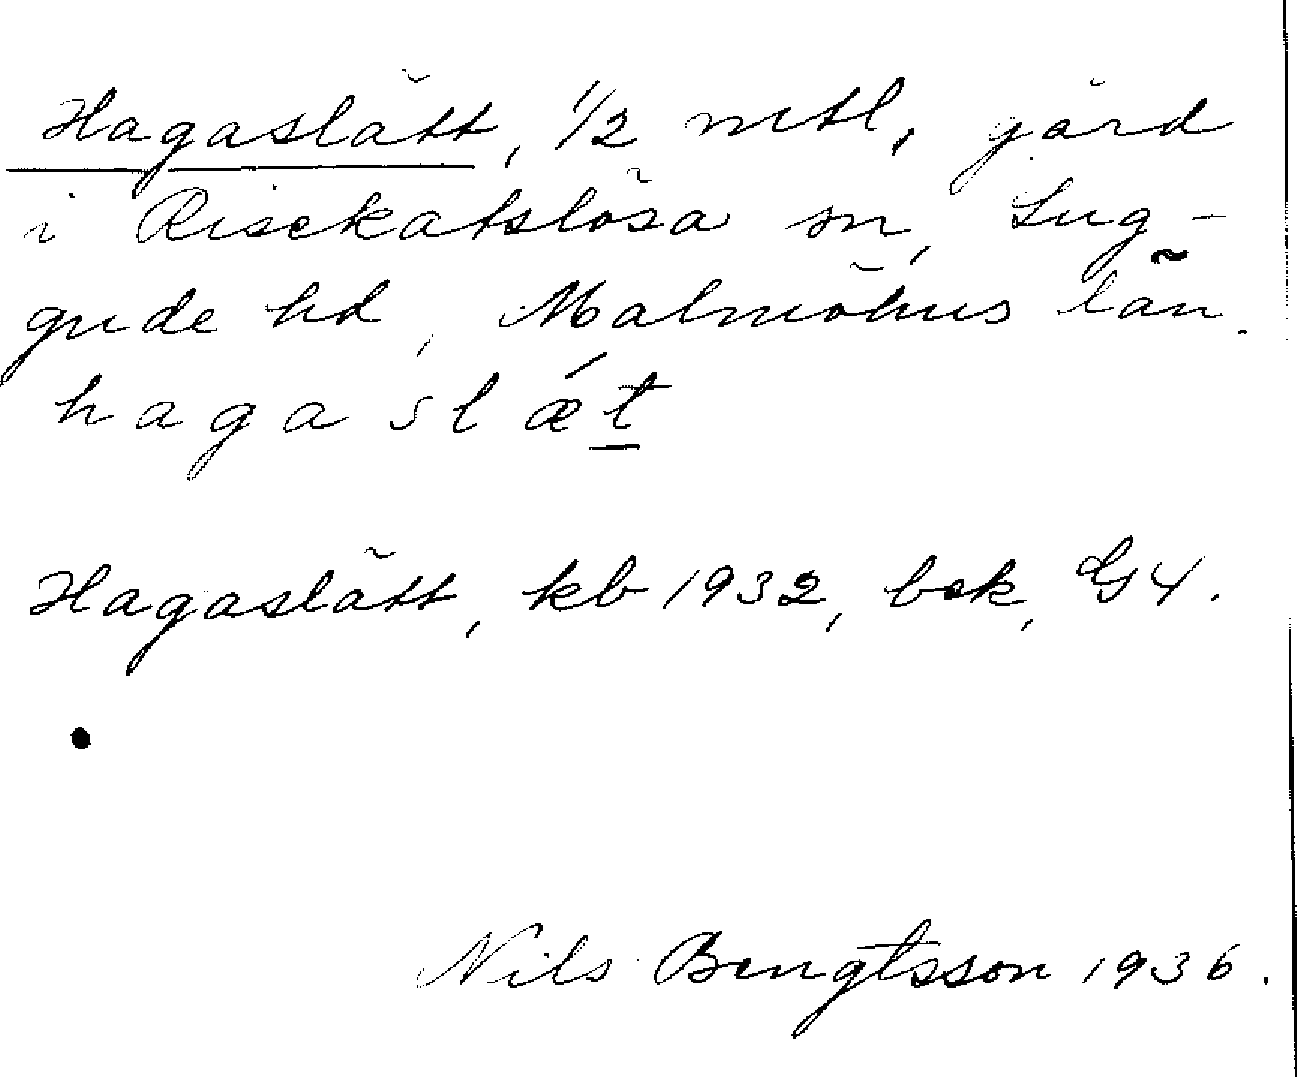 Hagaslätt, 1/2 mtl, gård
i Risekatslösa sn, Lug-
gude hd, Malmöhus län.
hagaslǽt
Hagaslätt, kb 1932, bek, G4.
Nils Bengtsson 1936.